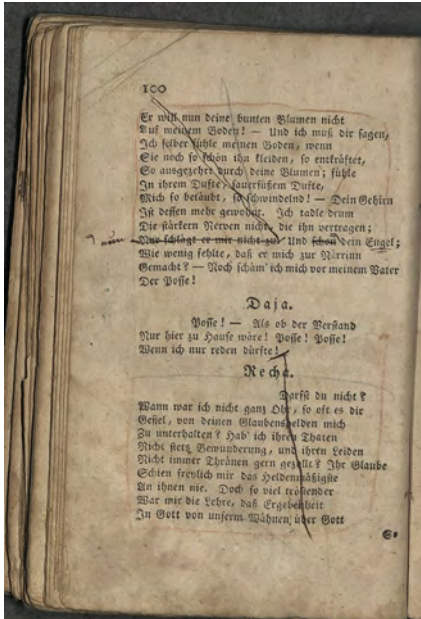 100
Er will nun deine bunten Blumen nicht
Auf meinem Boden! — Und ich muß dir sagen,
Ich selber fühle meinen Boden, wenn
Sie noch so schön ihn kleiden, so entkräftet,
So ausgezehrt durch deine Blumen; fühle
In ihrem Dufte, sauersüßem Dufte,
Mich so betäubt, so schwindelnd! — Dein Gehirn
Ist dessen mehr gewohnt. Ich tadle drum
Die stärkern Nerven nicht, die ihn vertragen;
Nur schlägt er mir nicht zu. Und schon dein Engel;
Wie wenig fehlte, daß er mich zur Närrinn
Gemacht? — Noch schäm' ich mich vor meinem Vater
Der Posse!
Daja.
Posse! — Als ob der Verstand
Nur hier zu Hause wäre! Posse! Posse!
Wenn ich nur reden dürfte!
Recha.
Darfst du nicht?
Wann war ich nicht ganz Ohr, so oft es dir
Gefiel, von deinen Glaubenshelden mich
Zu unterhalten? Hab' ich ihren Thaten
Nicht stets Bewunderung, und ihren Leiden
Nicht immer Thränen gern gezollt? Ihr Glaube
Schien freylich mir das Heldenmäßigste
An ihnen nie. Doch so viel tröstender
War mir die Lehre, daß Ergebenheit
In Gott von unserm Wähnen über Gott